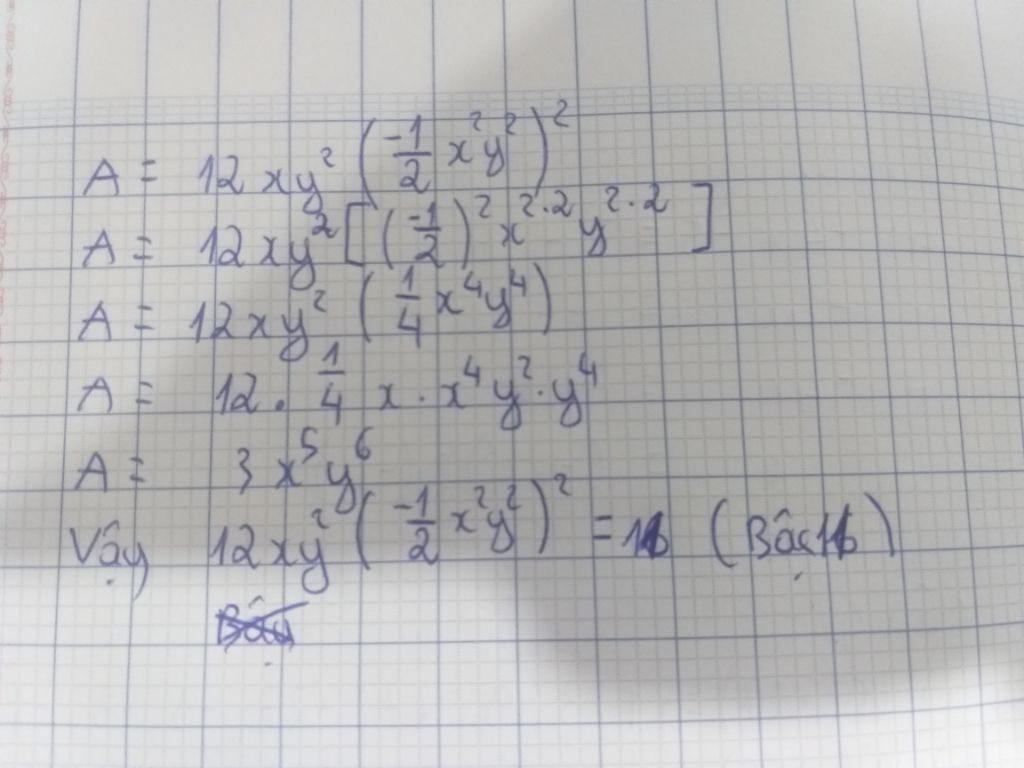 A = 12xy² (-1/2 x²y²)²
A = 12xy² [(-1/2)² x^2·2 y^2·2]
A = 12xy² (1/4 x⁴y⁴)
A = 12 · 1/4 x · x⁴y² · y⁴
A = 3x⁵y⁶
Vậy 12xy² (-1/2 x²y²)² = (Bậc )